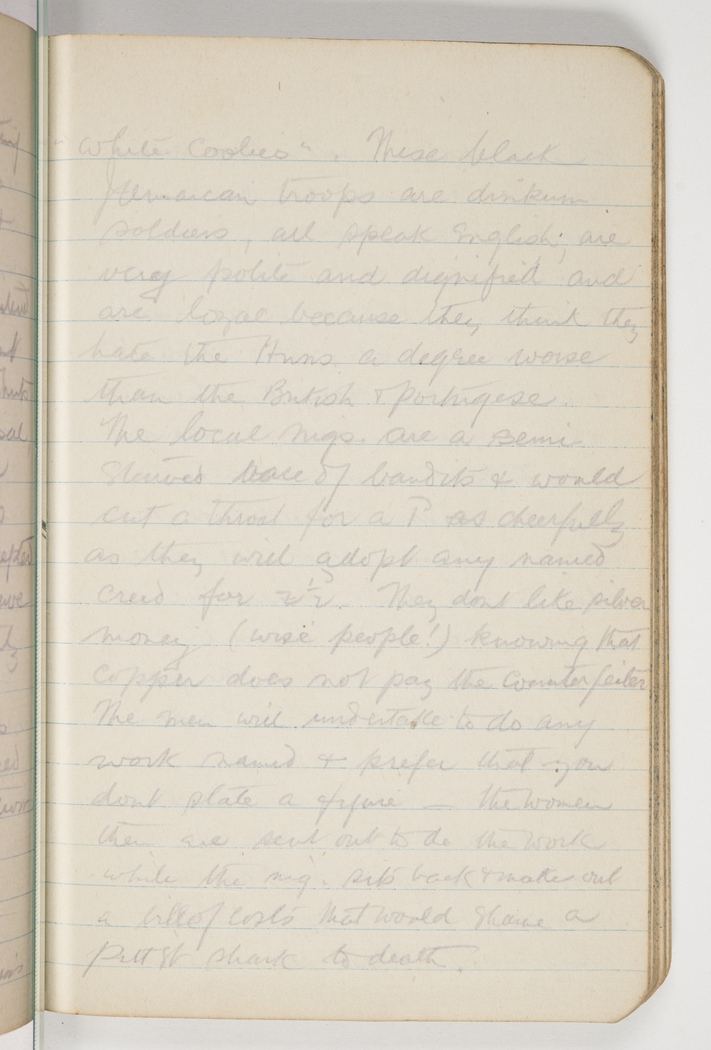 "White Coolies". These black
Jemaican troops are dinkum
soldiers, all speak English, are
very polite and dignified and
are loyal because they think they
hate the Huns a degree worse
than the British & Portugese.
The local nigs. are a semi-
starved race of bandits & would
cut a throat for a P as cheerfully
as they will adopt any named
creed for 2½. They dont like silver
money (wise people!) knowing that
copper does not pay the counterfeiter.
The men will undertake to do any
work named & prefer that you
dont state a figure — the women
then are sent out to do the work
while the nig. sits back & makes out
a bill of costs that would shame a
Pitt St shark to death.